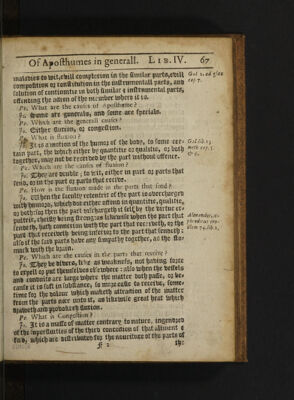 Of Aposthumes in generall. LIB. IV. 67
maladies to wit, evill complexion in the similar parts, evill
composition or constitution in the instrumentall parts, and
solution of continuitie in both similar & instrumentall parts,
offending the action of the member where it is.
Pr. What are the causes of Aposthume?
Ja. Some are generals, and some are specials.
Pr. Which are the generall causes?
Ja. Either fluxion, or congestion.
Pr. What is fluxion?
Ja. It is a motion of the humor of the body, to some cer-
tain part, the which either by quantitie or qualitie, or both
together, may not be received by the part without offence.
Pr. Which are the causes of fluxion?
Ja. They are double; to wit, either in part or parts that
send, or in the part or parts that receive.
Pr. How is the fluxion made in the parts that send?
Ja. When the faculty retentrit of the part is overcharged
with humors, which doe either offend in quantitie, qualitie,
or both: for then the part dischargeth it self by the virtue ex-
pultrit, the site being strong: as likewise when the part that
sendeth, hath connexion with the part that receiveth, or the
part that receiveth being inferior to the part that sendeth:
also if the said parts have any simpathy together, as the sto-
mack with the brain.
Pr. Which are the causes in the parts that receive?
Ja. They be divers, like as weaknesse, not having force
to expell or put themselves else where: also when the vessels
and conduits are large where the matter doth passe, or be-
cause it is soft in substance, is more easie to receive, some-
time for the dolour which maketh attraction of the matter
from the parts neer unto it, as likewise great heat which
draweth and provoketh fluxion.
Pr. What is Congestion?
Ja. It is a masse of matter contrary to nature, ingendred
of the superfluities of the third concoction of that aliment &
food, which are distributed for the nouriture of the parts of
F 2 the
Gal. lib. 13
meth. cap. 1